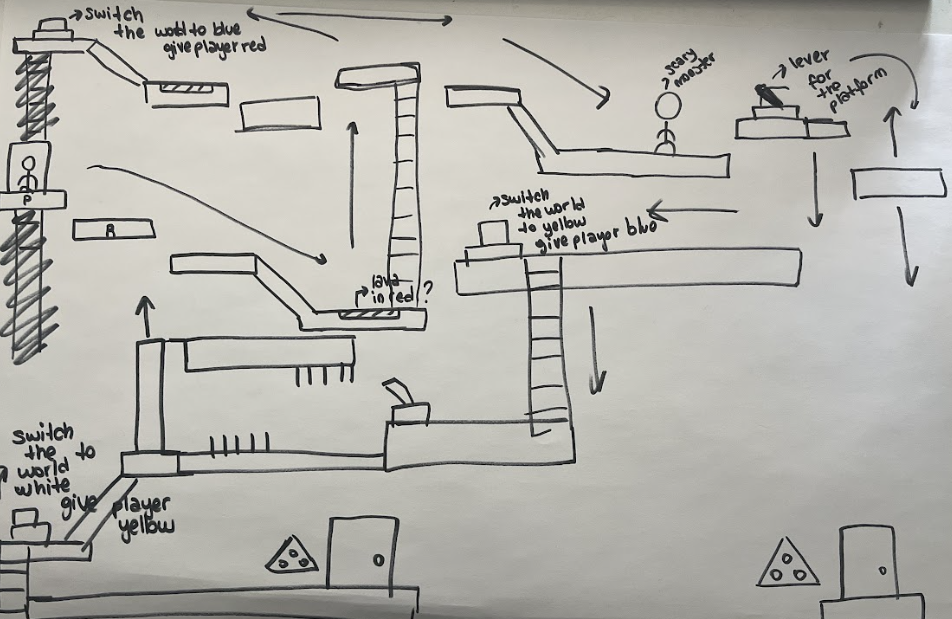 switch
the world to blue
give player red
scary
monster
lever
for
the
platform
P
R
switch
the world
to yellow
give player blue
lava
in red ?
switch
the to
world
white
give player
yellow